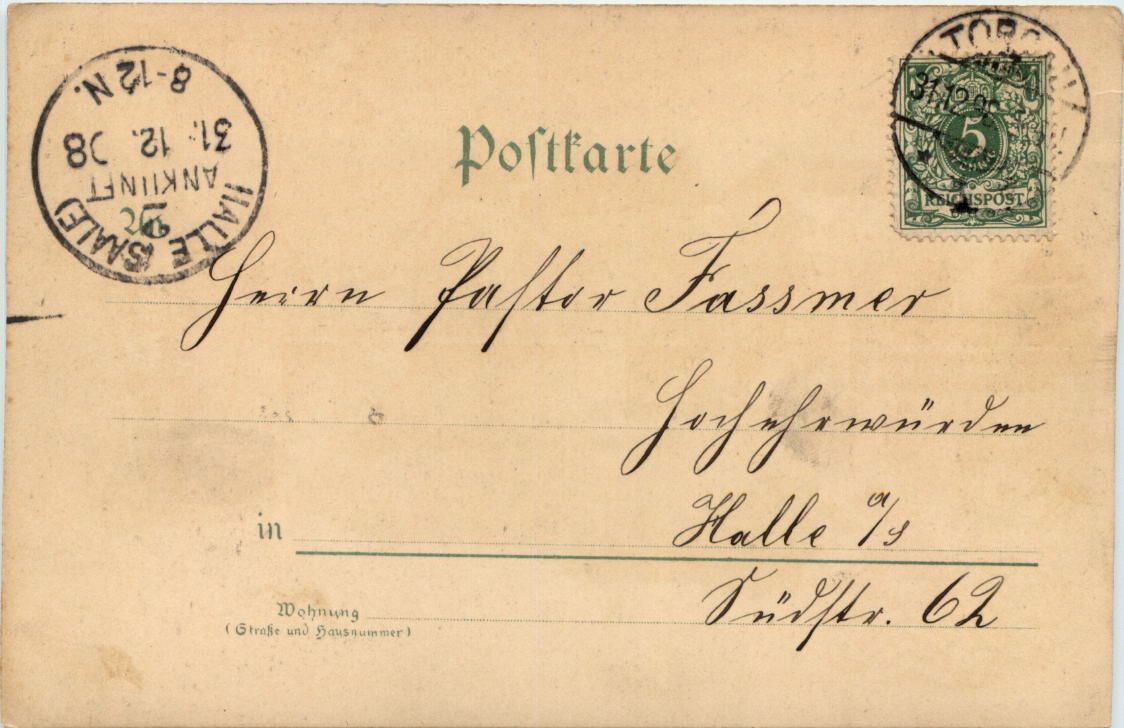 Postkarte
TORGAU
31.12.98
5
REICHSPOST
HALLE (SAALE)
2
ANKUNFT
31. 12. 98
8-12 N.
Herrn Pastor Fassmer
Hochehrwürden
in Halle a/S
Wohnung Südstr. 62
(Straße und Hausnummer)